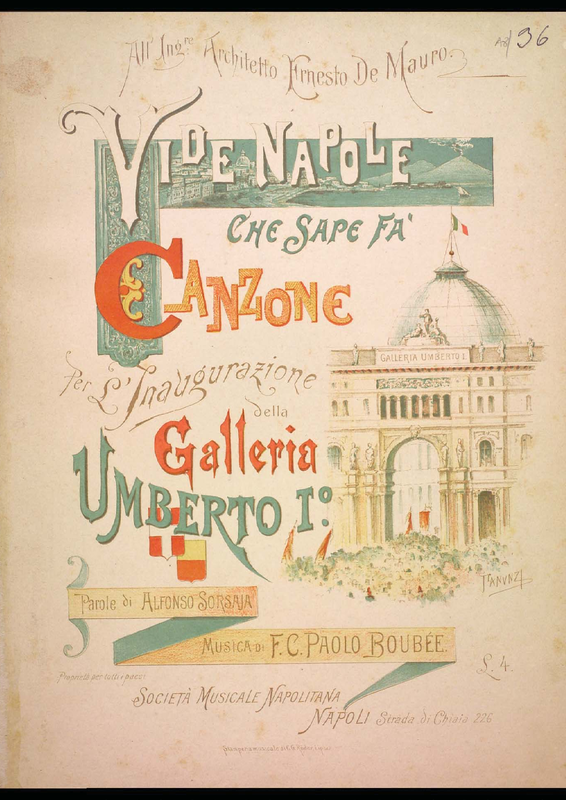 All' Ing.re Architetto Ernesto De Mauro.
136
VIDE NAPOLE
CHE SAPE FA'
CANZONE
GALLERIA UMBERTO I.
Per L'Inaugurazione
della
Galleria
UMBERTO I.º
Parole di ALFONSO SORSAJA
MUSICA DI F. C. PAOLO BOUBÉE.
L. 4.
Proprietà per tutti i paesi
SOCIETÀ MUSICALE NAPOLITANA
NAPOLI Strada di Chiaia 226